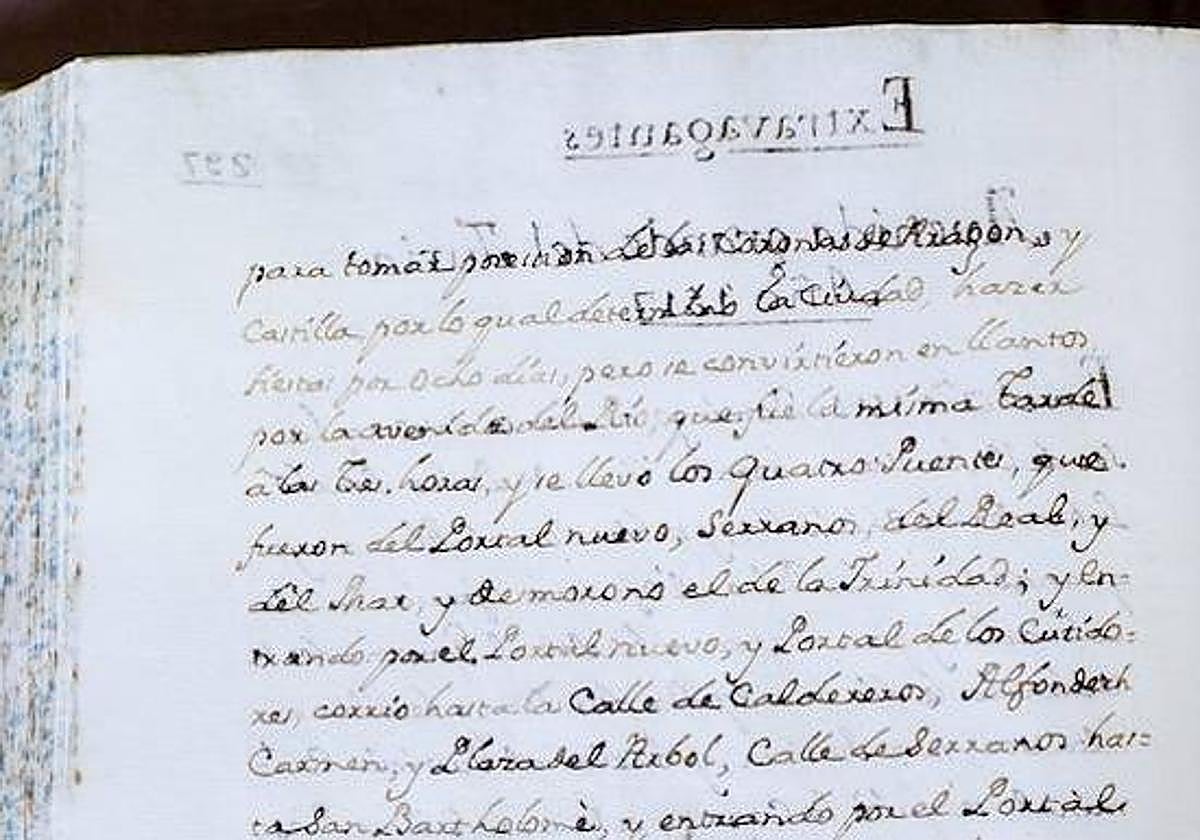 Extravagantes
297
para tomar posesion de las Coronas de Aragon, y
Castilla por lo qual determinò la Ciudad, hazer
fiestas por ocho dias, pero se convirtieron en llantos
por la avenida del Rio, que fue la misma tarde
à las tres horas, y se llevò los quatro Puentes, que
fueron del Portal nuevo, Serranos, del Real, y
del Mar, y demoronò el de la Trinidad; y En-
trando por el Portal nuevo, y Portal de los Curtido=
res, corriò hasta la Calle de Caldereros,
Carmen, y Plaza del Arbol, Calle de Serranos has=
ta San Bartholomè, y entrando por el Portal